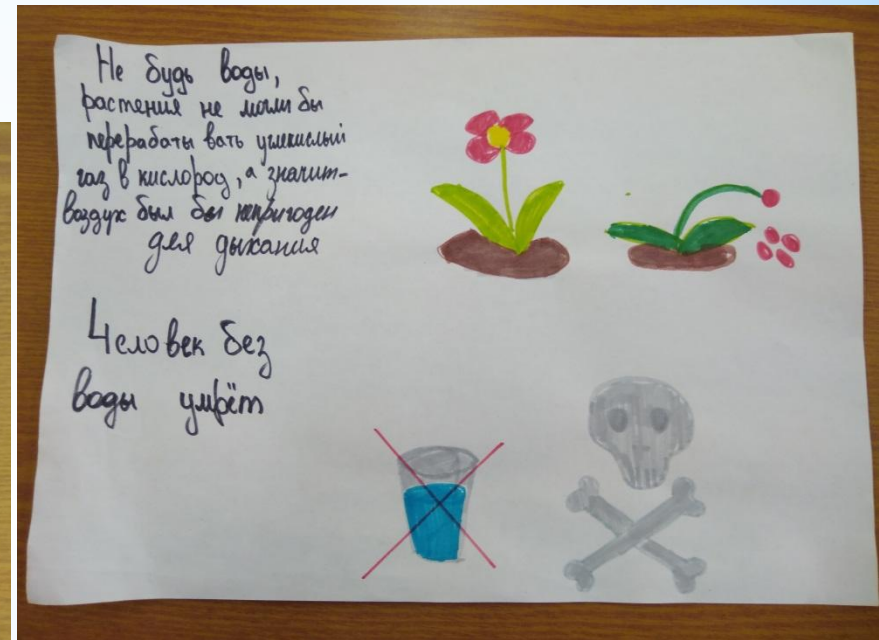 Не будь воды,
растения не могли бы
перерабаты вать углекислый
газ в кислород, а значит-
воздух был бы непригоден
для дыхания
Человек без
воды умрёт